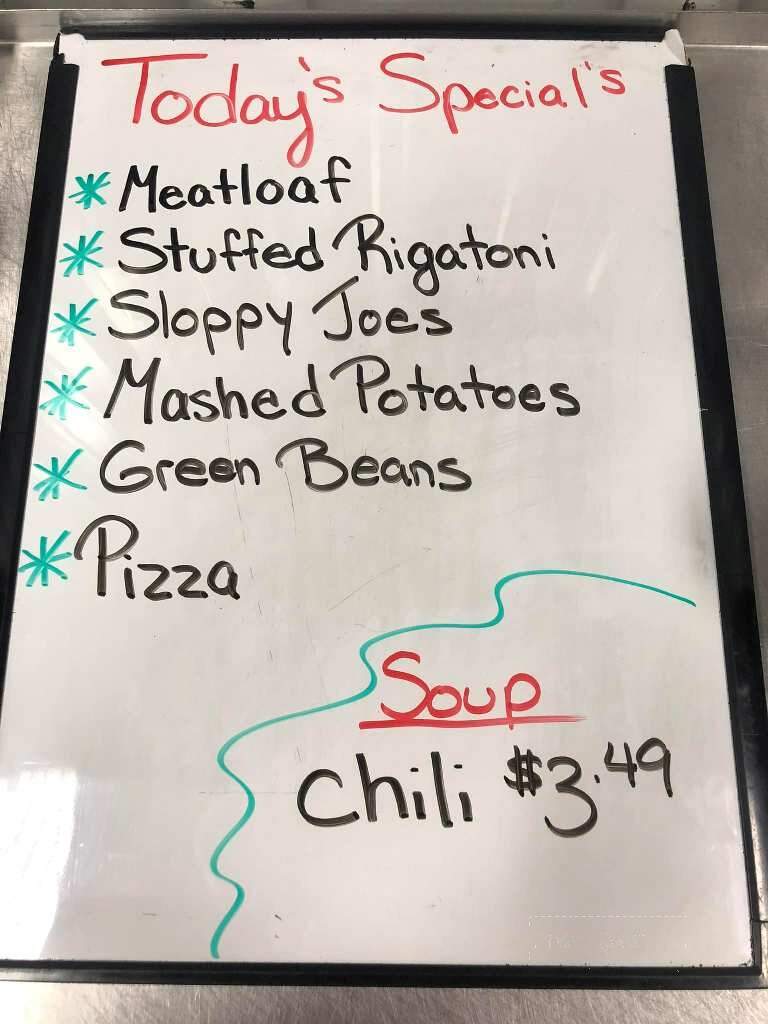 Today's Special's
* Meatloaf
* Stuffed Rigatoni
* Sloppy Joes
* Mashed Potatoes
* Green Beans
* Pizza
Soup
Chili $3.49